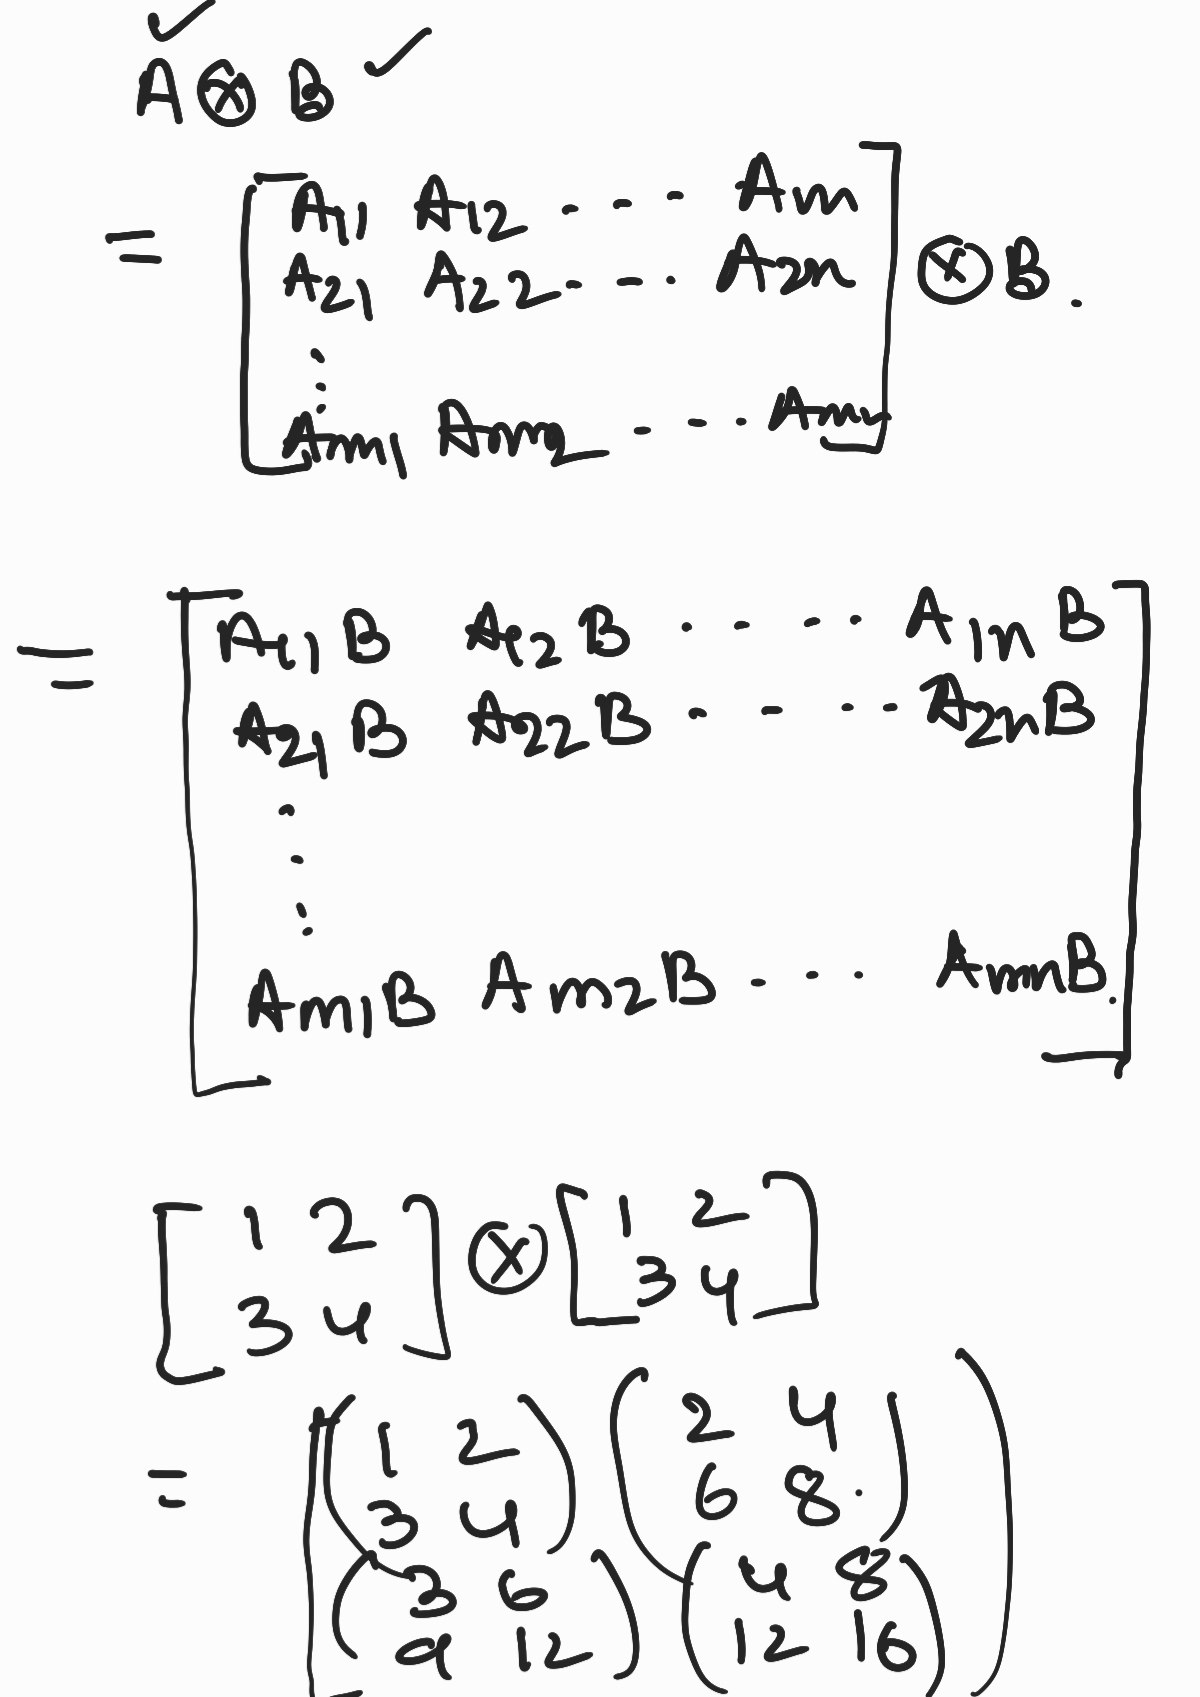 ✓
A ⊗ B ✓
A11 A12 - - - Am
= A21 A22 - - - A2n ⊗ B.
⋮
Am1 Am2 - - - Am
= A11B A12B · · · · A1nB
A21B A22B · · · · A2nB
⋮
Am1B Am2B - - - AmnB.
[1 2 ] ⊗ [1 2 ]
[3 4 ] [3 4 ]
= (1 2) (2 4)
(3 4) (6 8.)
(3 6) (4 8)
(9 12) (12 16)